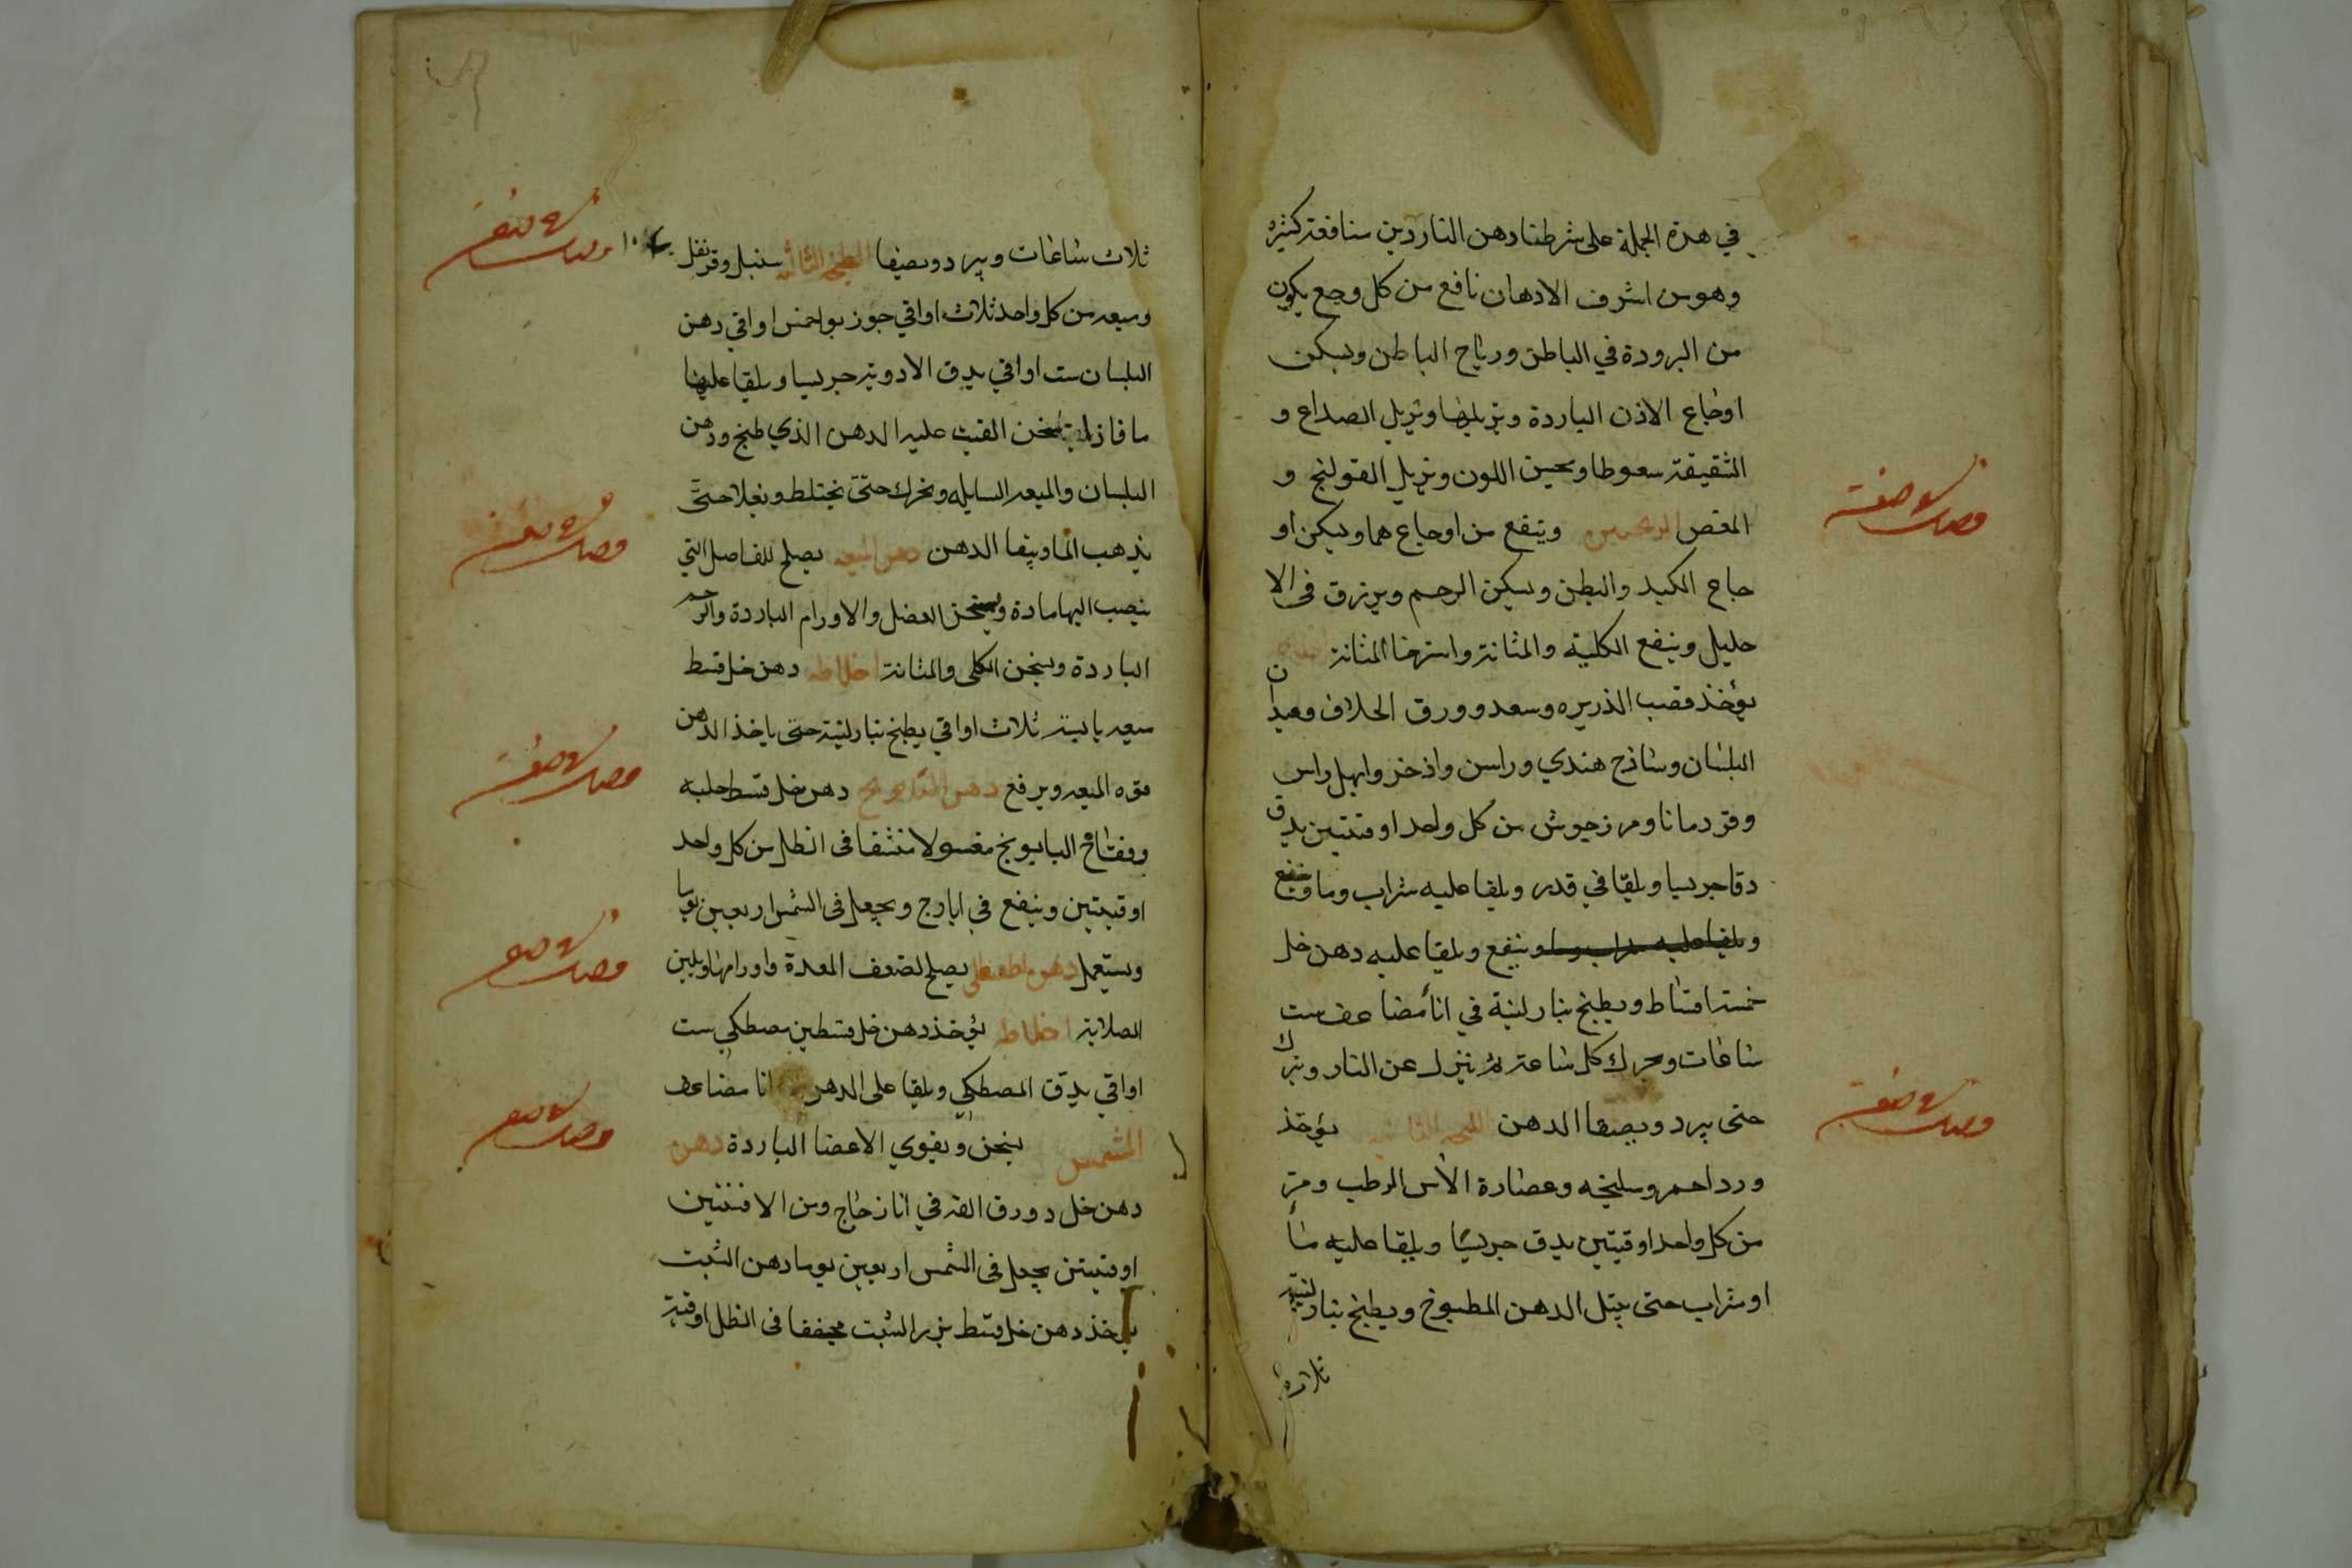 في هذه الجملة على شرطنا دهن الناردين منافعة كثيره
وهو من اشرف الادهان نافع من كل وجع يكون
من البرودة في الباطن ورياح الباطن ويسكن
اوجاع الاذن الباردة ويزيلها ويزيل الصداع و
الشقيقة سعوطا ويحسن اللون ويزيل القولنج و
المغص وينفع من اوجاعهما ويسكن او
جاع الكبد والبطن ويسكن الرحم ويزرق في الا
حليل وينفع الكلية والمثانة واسترخا المثانة
يؤخذ قصب الذريره وسعد وورق الخلاف وعيدان
البلسان وساذج هندي وراسن واذخر وابهل واس
وقردمانا ومرزجوش من كل واحد اوقيتين يدق
دقا جريسا ويلقا في قدر ويلقا عليه شراب وما وينقع
وينقع ويلقا عليه دهن خل
خمسة اقساط ويطبخ بنار لينة في انأ مضاعف ست
ساعات ويحرك كل ساعة ثم ينزل عن النار ويترك
حتى يبرد ويصفا الدهن يؤخذ
ورد احمر وسليخه وعصارة الأس الرطب ومر
من كل واحد اوقيتين يدق جريسًا ويلقا عليه مأ
او شراب حتى يبتل الدهن المطبوخ ويطبخ بنار لينة
فصل في صفة
فصل في صفة
ثلاث ساعات ويبرد ويصفا الطبخة الثالثة سنبل وقرنفل
وميعه من كل واحد ثلاث اواقي جوز بوا خمس اواقي دهن
البلسان ست اواقي يدق الادوية جريسا ويلقا عليها
ما فاذا سخن القيت عليه الدهن الذي طبخ ودهن
البلسان والميعه السايله ويحرك حتى يختلط ويغلا حتى
يذهب الما ويبقا الدهن دهن الميعه يصلح للمفاصل التي
ينصب اليها مادة ويسخن العضل والاورام الباردة والرحم
الباردة ويسخن الكلى والمثانة اخلاطه دهن خل قسط
ميعه يابسة ثلاث اواقي يطبخ بنار لينة حتى ياخذ الدهن
قوه الميعه ويرفع دهن البابونج دهن خل قسط حلبه
وفقاح البابونج مغسولا منشفا في الظل من كل واحد
اوقيتين وينقع في ويجعل في الشمس اربعين يوما
ويستعمل دهن يصلح لضعف المعدة واورامها ويلين
الصلابة اخلاطه يؤخذ دهن خل قسطين مصطكي ست
اواقي يدق المصطكي ويلقا على الدهن انا مضاعف
المشمس يسخن ويقوي الاعضا الباردة دهن
دهن خل دورق القه في انا زجاج ومن الافسنتين
اوقيتين يجعل في الشمس اربعين يوما دهن الشبت
يؤخذ دهن خل قسط بزر الشبت مجففا في الظل اوقية
فصل في صفة
فصل في صفة
فصل في صفة
فصل في صفة
فصل في صفة